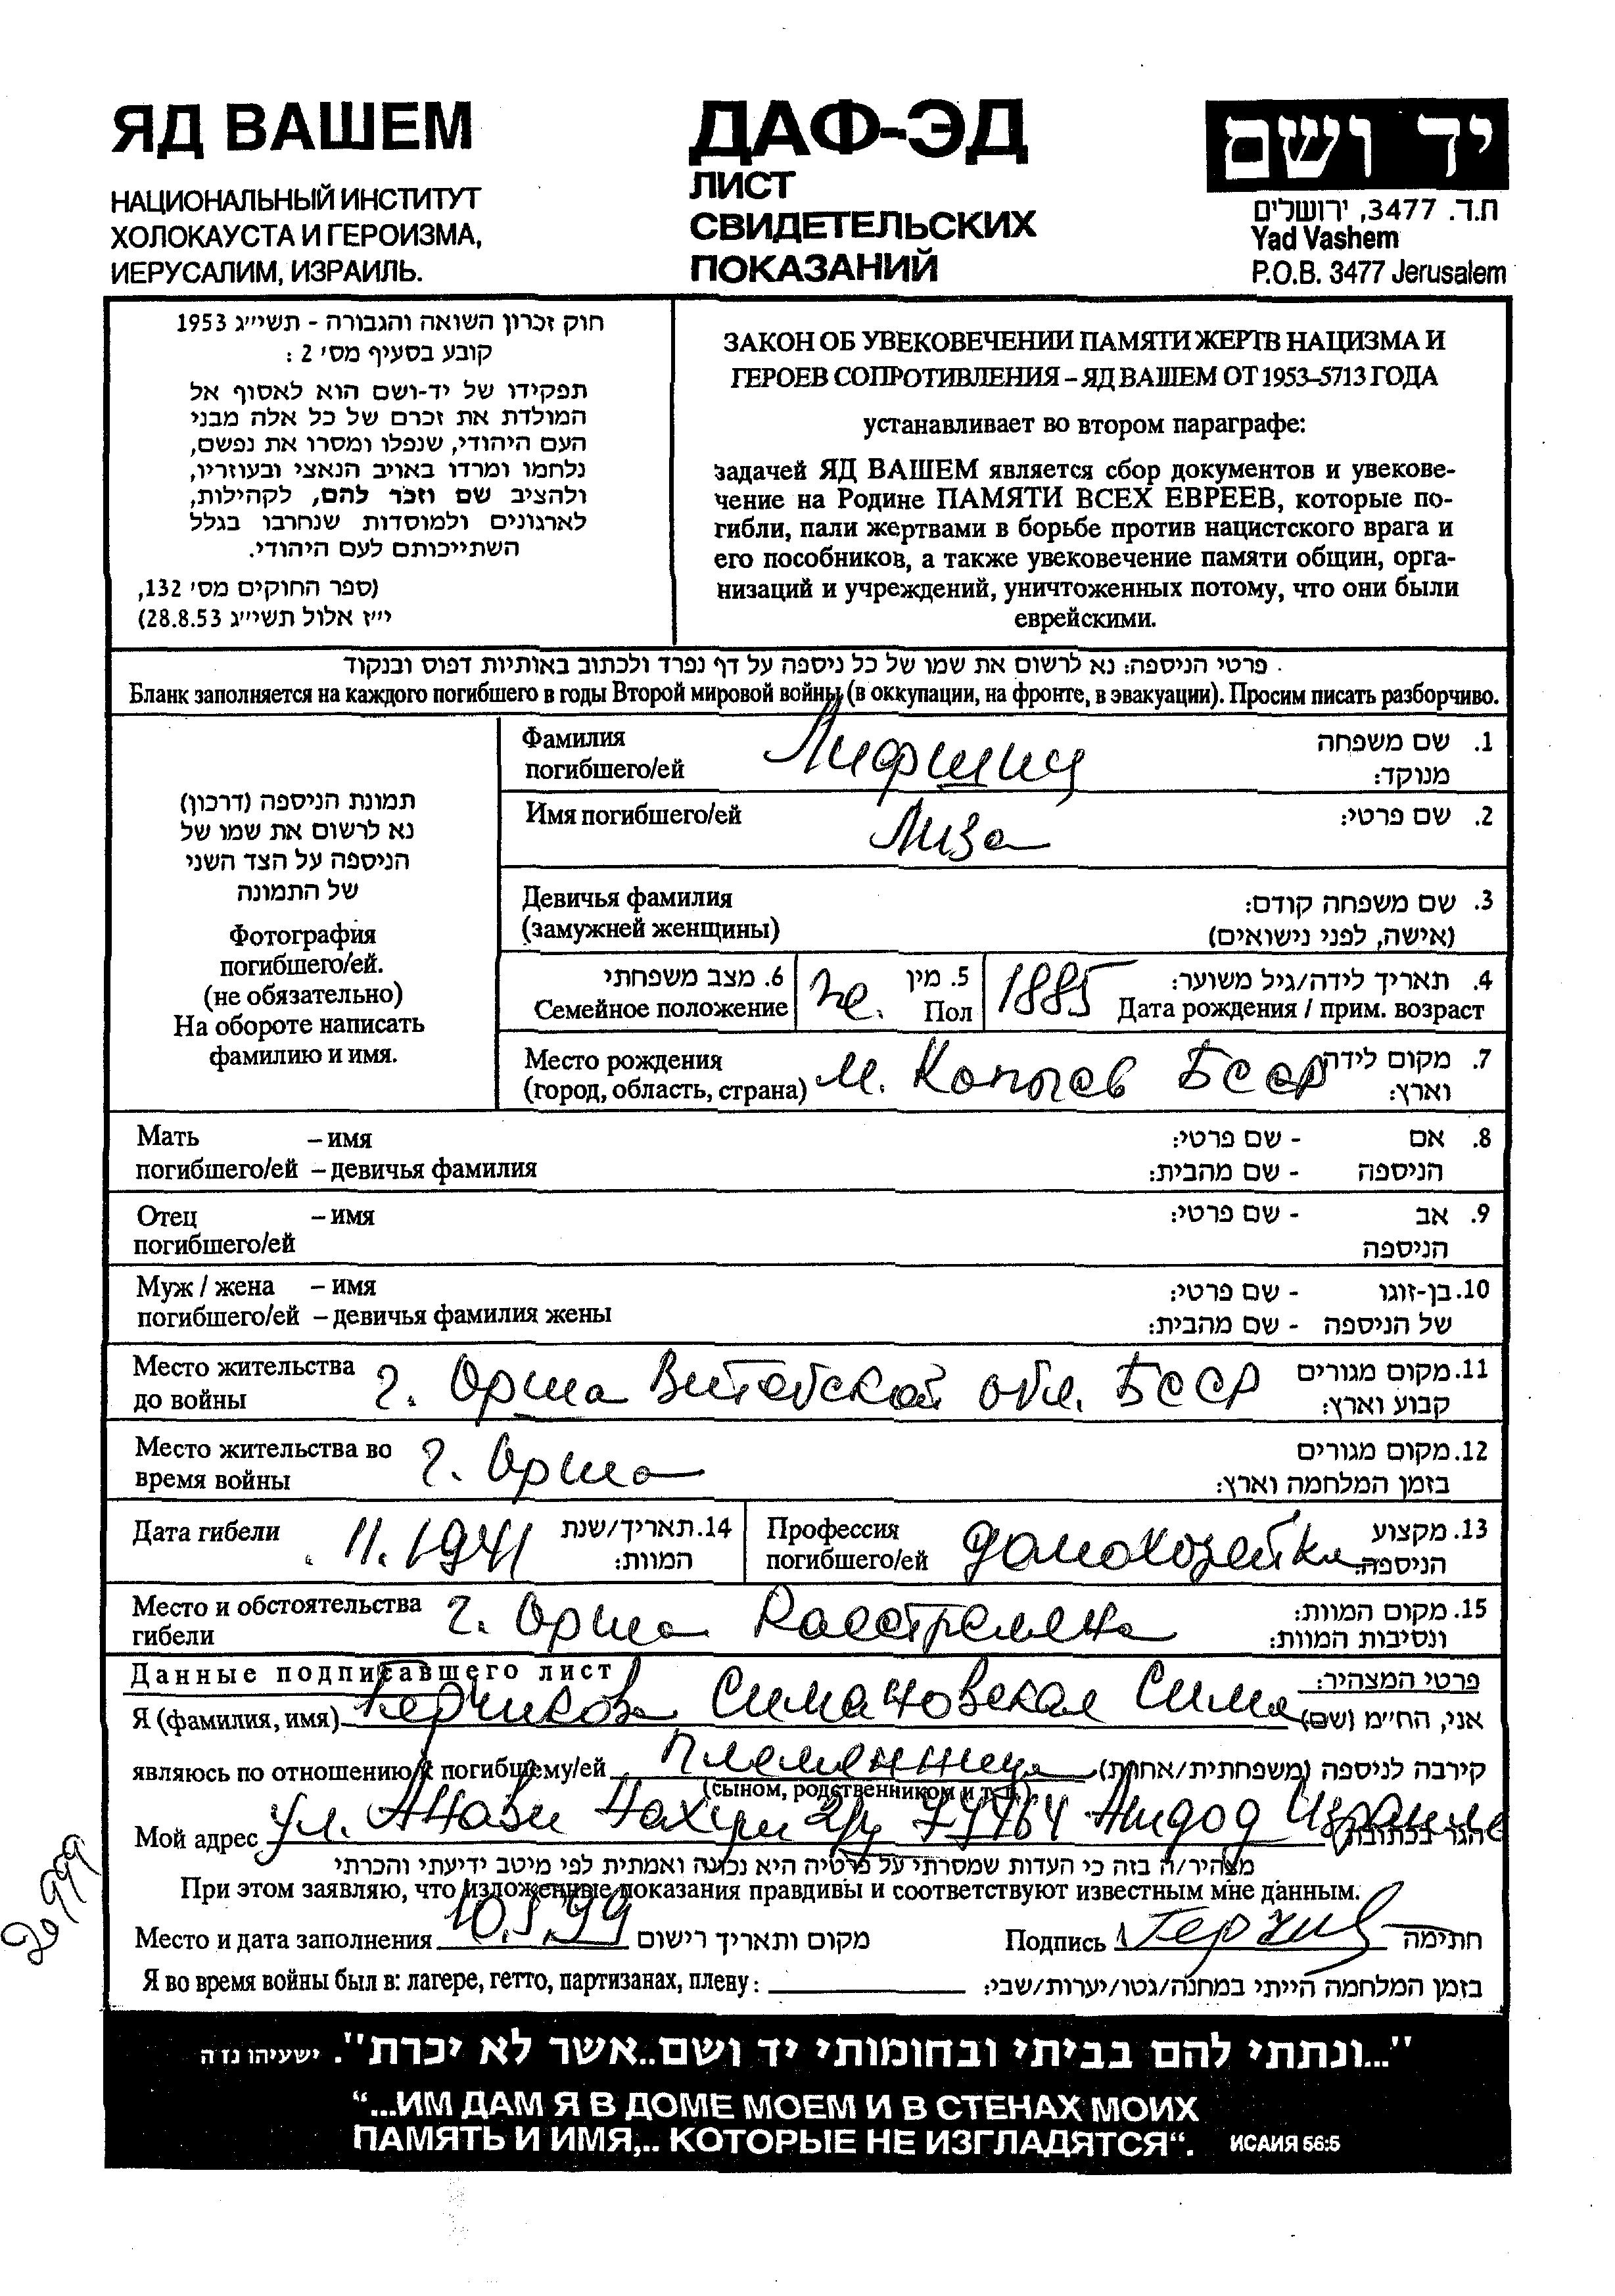 ЯД ВАШЕМ
НАЦИОНАЛЬНЫЙ ИНСТИТУТ
ХОЛОКАУСТА И ГЕРОИЗМА,
ИЕРУСАЛИМ, ИЗРАИЛЬ.
ДАФ-ЭД
ЛИСТ
СВИДЕТЕЛЬСКИХ
ПОКАЗАНИЙ
יד ושם
ת.ד. 3477, ירושלים
Yad Vashem
P.O.B. 3477 Jerusalem
חוק זכרון השואה והגבורה - תשי״ג 1953
קובע בסעיף מס׳ 2 :
תפקידו של יד-ושם הוא לאסוף אל
המולדת את זכרם של כל אלה מבני
העם היהודי, שנפלו ומסרו את נפשם,
נלחמו ומרדו באויב הנאצי ובעוזריו,
ולהציב שם וזכר להם, לקהילות,
לארגונים ולמוסדות שנחרבו בגלל
השתייכותם לעם היהודי.
(ספר החוקים מס׳ 132,
י״ז אלול תשי״ג 28.8.53)
ЗАКОН ОБ УВЕКОВЕЧЕНИИ ПАМЯТИ ЖЕРТВ НАЦИЗМА И
ГЕРОЕВ СОПРОТИВЛЕНИЯ – ЯД ВАШЕМ ОТ 1953–5713 ГОДА
устанавливает во втором параграфе:
задачей ЯД ВАШЕМ является сбор документов и увекове-
чение на Родине ПАМЯТИ ВСЕХ ЕВРЕЕВ, которые по-
гибли, пали жертвами в борьбе против нацистского врага и
его пособников, а также увековечение памяти общин, орга-
низаций и учреждений, уничтоженных потому, что они были
еврейскими.
פרטי הניספה: נא לרשום את שמו של כל ניספה על דף נפרד ולכתוב באותיות דפוס ובנקוד
Бланк заполняется на каждого погибшего в годы Второй мировой войны (в оккупации, на фронте, в эвакуации). Просим писать разборчиво.
תמונת הניספה (דרכון)
נא לרשום את שמו של
הניספה על הצד השני
של התמונה
Фотография
погибшего/ей.
(не обязательно)
На обороте написать
фамилию и имя.
Фамилия погибшего/ей Лифшиц 1. שם משפחה מנוקד:
Имя погибшего/ей Лиза 2. שם פרטי:
Девичья фамилия 3. שם משפחה קודם:
(замужней женщины) (אישה, לפני נישואים)
6. מצב משפחתי 5. מין 4. תאריך לידה/גיל משוער:
Семейное положение же. Пол 1885 Дата рождения / прим. возраст
Место рождения 7. מקום לידה
(город, область, страна) м. Копысев БССР וארץ:
Мать – имя 8. אם - שם פרטי:
погибшего/ей – девичья фамилия הניספה - שם מהבית:
Отец – имя 9. אב - שם פרטי:
погибшего/ей הניספה
Муж / жена – имя 10. בן-זוגו - שם פרטי:
погибшего/ей – девичья фамилия жены של הניספה - שם מהבית:
Место жительства 11. מקום מגורים
до войны г. Орша Витебской обл. БССР קבוע וארץ:
Место жительства во 12. מקום מגורים
время войны г. Орша בזמן המלחמה וארץ:
Дата гибели 11.1941 14. תאריך/שנת המוות:
Профессия погибшего/ей домохозейка 13. מקצוע הניספה:
Место и обстоятельства 15. מקום המוות:
гибели г. Орша Расстреляна ונסיבות המוות:
Данные подписавшего лист פרטי המצהיר:
Я (фамилия, имя) Герчикова Симановская Сима אני, הח״מ (שם)
являюсь по отношению к погибшему/ей племянница קירבה לניספה (משפחתית/אחרת)
(сыном, родственником и т.п.)
Мой адрес ул. 77464 Ашдод Израиль הגר בכתובת
מצהיר/ה בזה כי העדות שמסרתי על פרטיה היא נכונה ואמתית לפי מיטב ידיעתי והכרתי
При этом заявляю, что изложенные показания правдивы и соответствуют известным мне данным.
Место и дата заполнения 10.5.99 מקום ותאריך רישום Подпись חתימה
Я во время войны был в: лагере, гетто, партизанах, плену: בזמן המלחמה הייתי במחנה/גטו/יערות/שבי:
"...ונתתי להם בביתי ובחומותי יד ושם..אשר לא יכרת". ישעיהו נז ה
“...ИМ ДАМ Я В ДОМЕ МОЕМ И В СТЕНАХ МОИХ
ПАМЯТЬ И ИМЯ,.. КОТОРЫЕ НЕ ИЗГЛАДЯТСЯ“. ИСАИЯ 56:5